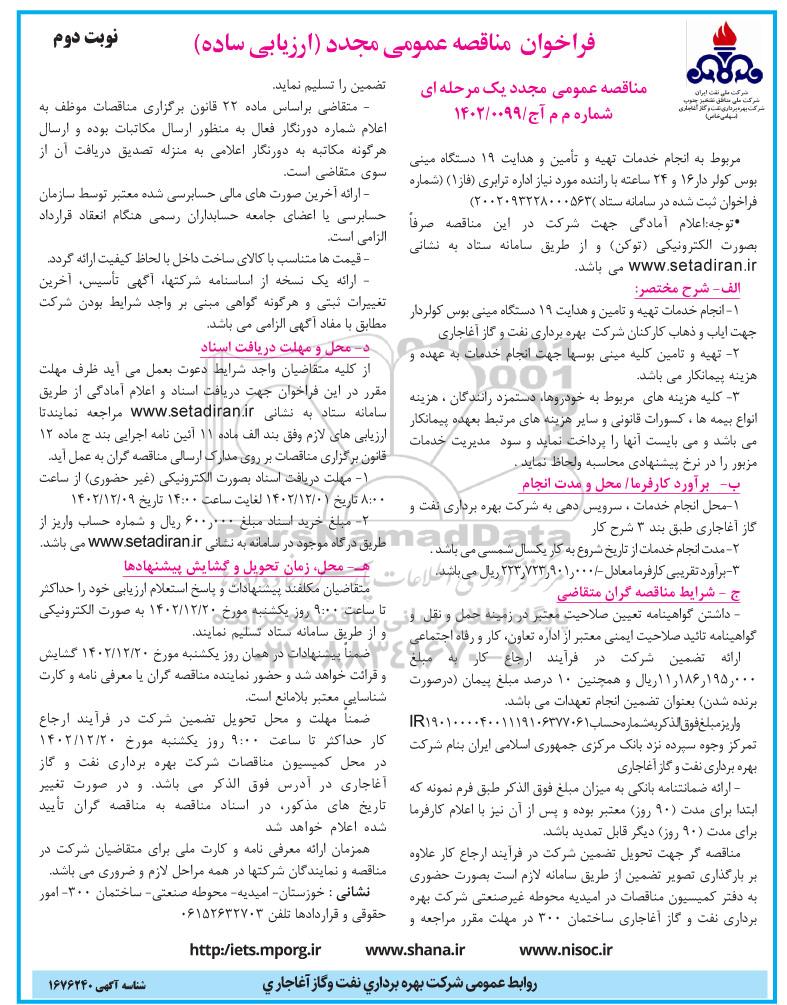 فراخوان مناقصه عمومی مجدد (ارزیابی ساده)
نوبت دوم
شرکت ملی نفت ایران
شرکت ملی مناطق نفتخیز جنوب
شرکت بهره برداری نفت و گاز آغاجاری
(سهامی خاص)
مناقصه عمومی مجدد یک مرحله ای
شماره م م آج/۱۴۰۲/۰۰۹۹
مربوط به انجام خدمات تهیه و تأمین و هدایت ۱۹ دستگاه مینی
بوس کولر دار۱۶ و ۲۴ ساعته با راننده مورد نیاز اداره ترابری (فاز۱) (شماره
فراخوان ثبت شده در سامانه ستاد )۲۰۰۲۰۹۳۲۲۸۰۰۰۵۶۳)
•توجه:اعلام آمادگی جهت شرکت در این مناقصه صرفاً
بصورت الکترونیکی (توکن) و از طریق سامانه ستاد به نشانی
www.setadiran.ir می باشد.
الف- شرح مختصر:
۱-انجام خدمات تهیه و تامین و هدایت ۱۹ دستگاه مینی بوس کولردار
جهت ایاب و ذهاب کارکنان شرکت بهره برداری نفت و گاز آغاجاری
۲- تهیه و تامین کلیه مینی بوسها جهت انجام خدمات به عهده و
هزینه پیمانکار می باشد.
۳- کلیه هزینه های مربوط به خودروها، دستمزد رانندگان ، هزینه
انواع بیمه ها ، کسورات قانونی و سایر هزینه های مرتبط بعهده پیمانکار
می باشد و می بایست آنها را پرداخت نماید و سود مدیریت خدمات
مزبور را در نرخ پیشنهادی محاسبه ولحاظ نماید .
ب- برآورد کارفرما/ محل و مدت انجام
۱-محل انجام خدمات ، سرویس دهی به شرکت بهره برداری نفت و
گاز آغاجاری طبق بند ۳ شرح کار
۲- مدت انجام خدمات از تاریخ شروع به کار یکسال شمسی می باشد .
۳-برآورد تقریبی کارفرما معادل -/۲۲۳٫۷۲۳٫۹۰۱٫۰۰۰ ریال می باشد.
ج - شرایط مناقصه گران متقاضی
- داشتن گواهینامه تعیین صلاحیت معتبر در زمینه حمل و نقل و
گواهینامه تائید صلاحیت ایمنی معتبر از اداره تعاون، کار و رفاه اجتماعی
ارائه تضمین شرکت در فرآیند ارجاع کار به مبلغ
۱۱٫۱۸۶٫۱۹۵٫۰۰۰ریال و همچنین ۱۰ درصد مبلغ پیمان (درصورت
برنده شدن) بعنوان تضمین انجام تعهدات می باشد.
واریز مبلغ فوق الذکر به شماره حساب IR۱۹۰۱۰۰۰۰۴۰۰۱۱۱۹۱۰۶۳۷۷۰۶۱
تمرکز وجوه سپرده نزد بانک مرکزی جمهوری اسلامی ایران بنام شرکت
بهره برداری نفت و گاز آغاجاری
- ارائه ضمانتنامه بانکی به میزان مبلغ فوق الذکر طبق فرم نمونه که
ابتدا برای مدت (۹۰ روز) معتبر بوده و پس از آن نیز با اعلام کارفرما
برای مدت (۹۰ روز) دیگر قابل تمدید باشد.
مناقصه گر جهت تحویل تضمین شرکت در فرآیند ارجاع کار علاوه
بر بارگذاری تصویر تضمین از طریق سامانه لازم است بصورت حضوری
به دفتر کمیسیون مناقصات در امیدیه محوطه غیرصنعتی شرکت بهره
برداری نفت و گاز آغاجاری ساختمان ۳۰۰ در مهلت مقرر مراجعه و
تضمین را تسلیم نماید.
- متقاضی براساس ماده ۲۲ قانون برگزاری مناقصات موظف به
اعلام شماره دورنگار فعال به منظور ارسال مکاتبات بوده و ارسال
هرگونه مکاتبه به دورنگار اعلامی به منزله تصدیق دریافت آن از
سوی متقاضی است.
- ارائه آخرین صورت های مالی حسابرسی شده معتبر توسط سازمان
حسابرسی یا اعضای جامعه حسابداران رسمی هنگام انعقاد قرارداد
الزامی است.
- قیمت ها متناسب با کالای ساخت داخل با لحاظ کیفیت ارائه گردد.
- ارائه یک نسخه از اساسنامه شرکتها، آگهی تأسیس، آخرین
تغییرات ثبتی و هرگونه گواهی مبنی بر واجد شرایط بودن شرکت
مطابق با مفاد آگهی الزامی می باشد.
د- محل و مهلت دریافت اسناد
از کلیه متقاضیان واجد شرایط دعوت بعمل می آید ظرف مهلت
مقرر در این فراخوان جهت دریافت اسناد و اعلام آمادگی از طریق
سامانه ستاد به نشانی www.setadiran.ir مراجعه نمایندتا
ارزیابی های لازم وفق بند الف ماده ۱۱ آئین نامه اجرایی بند ج ماده ۱۲
قانون برگزاری مناقصات بر روی مدارک ارسالی مناقصه گران به عمل آید.
۱- مهلت دریافت اسناد بصورت الکترونیکی (غیر حضوری) از ساعت
۸:۰۰ تاریخ ۱۴۰۲/۱۲/۰۱ لغایت ساعت ۱۴:۰۰ تاریخ ۱۴۰۲/۱۲/۰۹
۲- مبلغ خرید اسناد مبلغ ۶۰۰٫۰۰۰ ریال و شماره حساب واریز از
طریق درگاه موجود در سامانه به نشانی www.setadiran.ir می باشد.
هـ- محل، زمان تحویل و گشایش پیشنهادها
متقاضیان مکلفند پیشنهادات و پاسخ استعلام ارزیابی خود را حداکثر
تا ساعت ۹:۰۰ روز یکشنبه مورخ ۱۴۰۲/۱۲/۲۰ به صورت الکترونیکی
و از طریق سامانه ستاد تسلیم نمایند.
ضمناً پیشنهادات در همان روز یکشنبه مورخ ۱۴۰۲/۱۲/۲۰ گشایش
و قرائت خواهد شد و حضور نماینده مناقصه گران یا معرفی نامه و کارت
شناسایی معتبر بلامانع است.
ضمناً مهلت و محل تحویل تضمین شرکت در فرآیند ارجاع
کار حداکثر تا ساعت ۹:۰۰ روز یکشنبه مورخ ۱۴۰۲/۱۲/۲۰
در محل کمیسیون مناقصات شرکت بهره برداری نفت و گاز
آغاجاری در آدرس فوق الذکر می باشد. و در صورت تغییر
تاریخ های مذکور، در اسناد مناقصه به مناقصه گران تأیید
شده اعلام خواهد شد
همزمان ارائه معرفی نامه و کارت ملی برای متقاضیان شرکت در
مناقصه و نمایندگان شرکتها در همه مراحل لازم و ضروری می باشد.
نشانی : خوزستان- امیدیه- محوطه صنعتی- ساختمان ۳۰۰- امور
حقوقی و قراردادها تلفن ۰۶۱۵۲۶۳۲۷۰۳
http:/iets.mporg.ir www.shana.ir www.nisoc.ir
روابط عمومی شرکت بهره برداري نفت وگاز آغاجاري
شناسه آگهی ۱۶۷۶۲۴۰